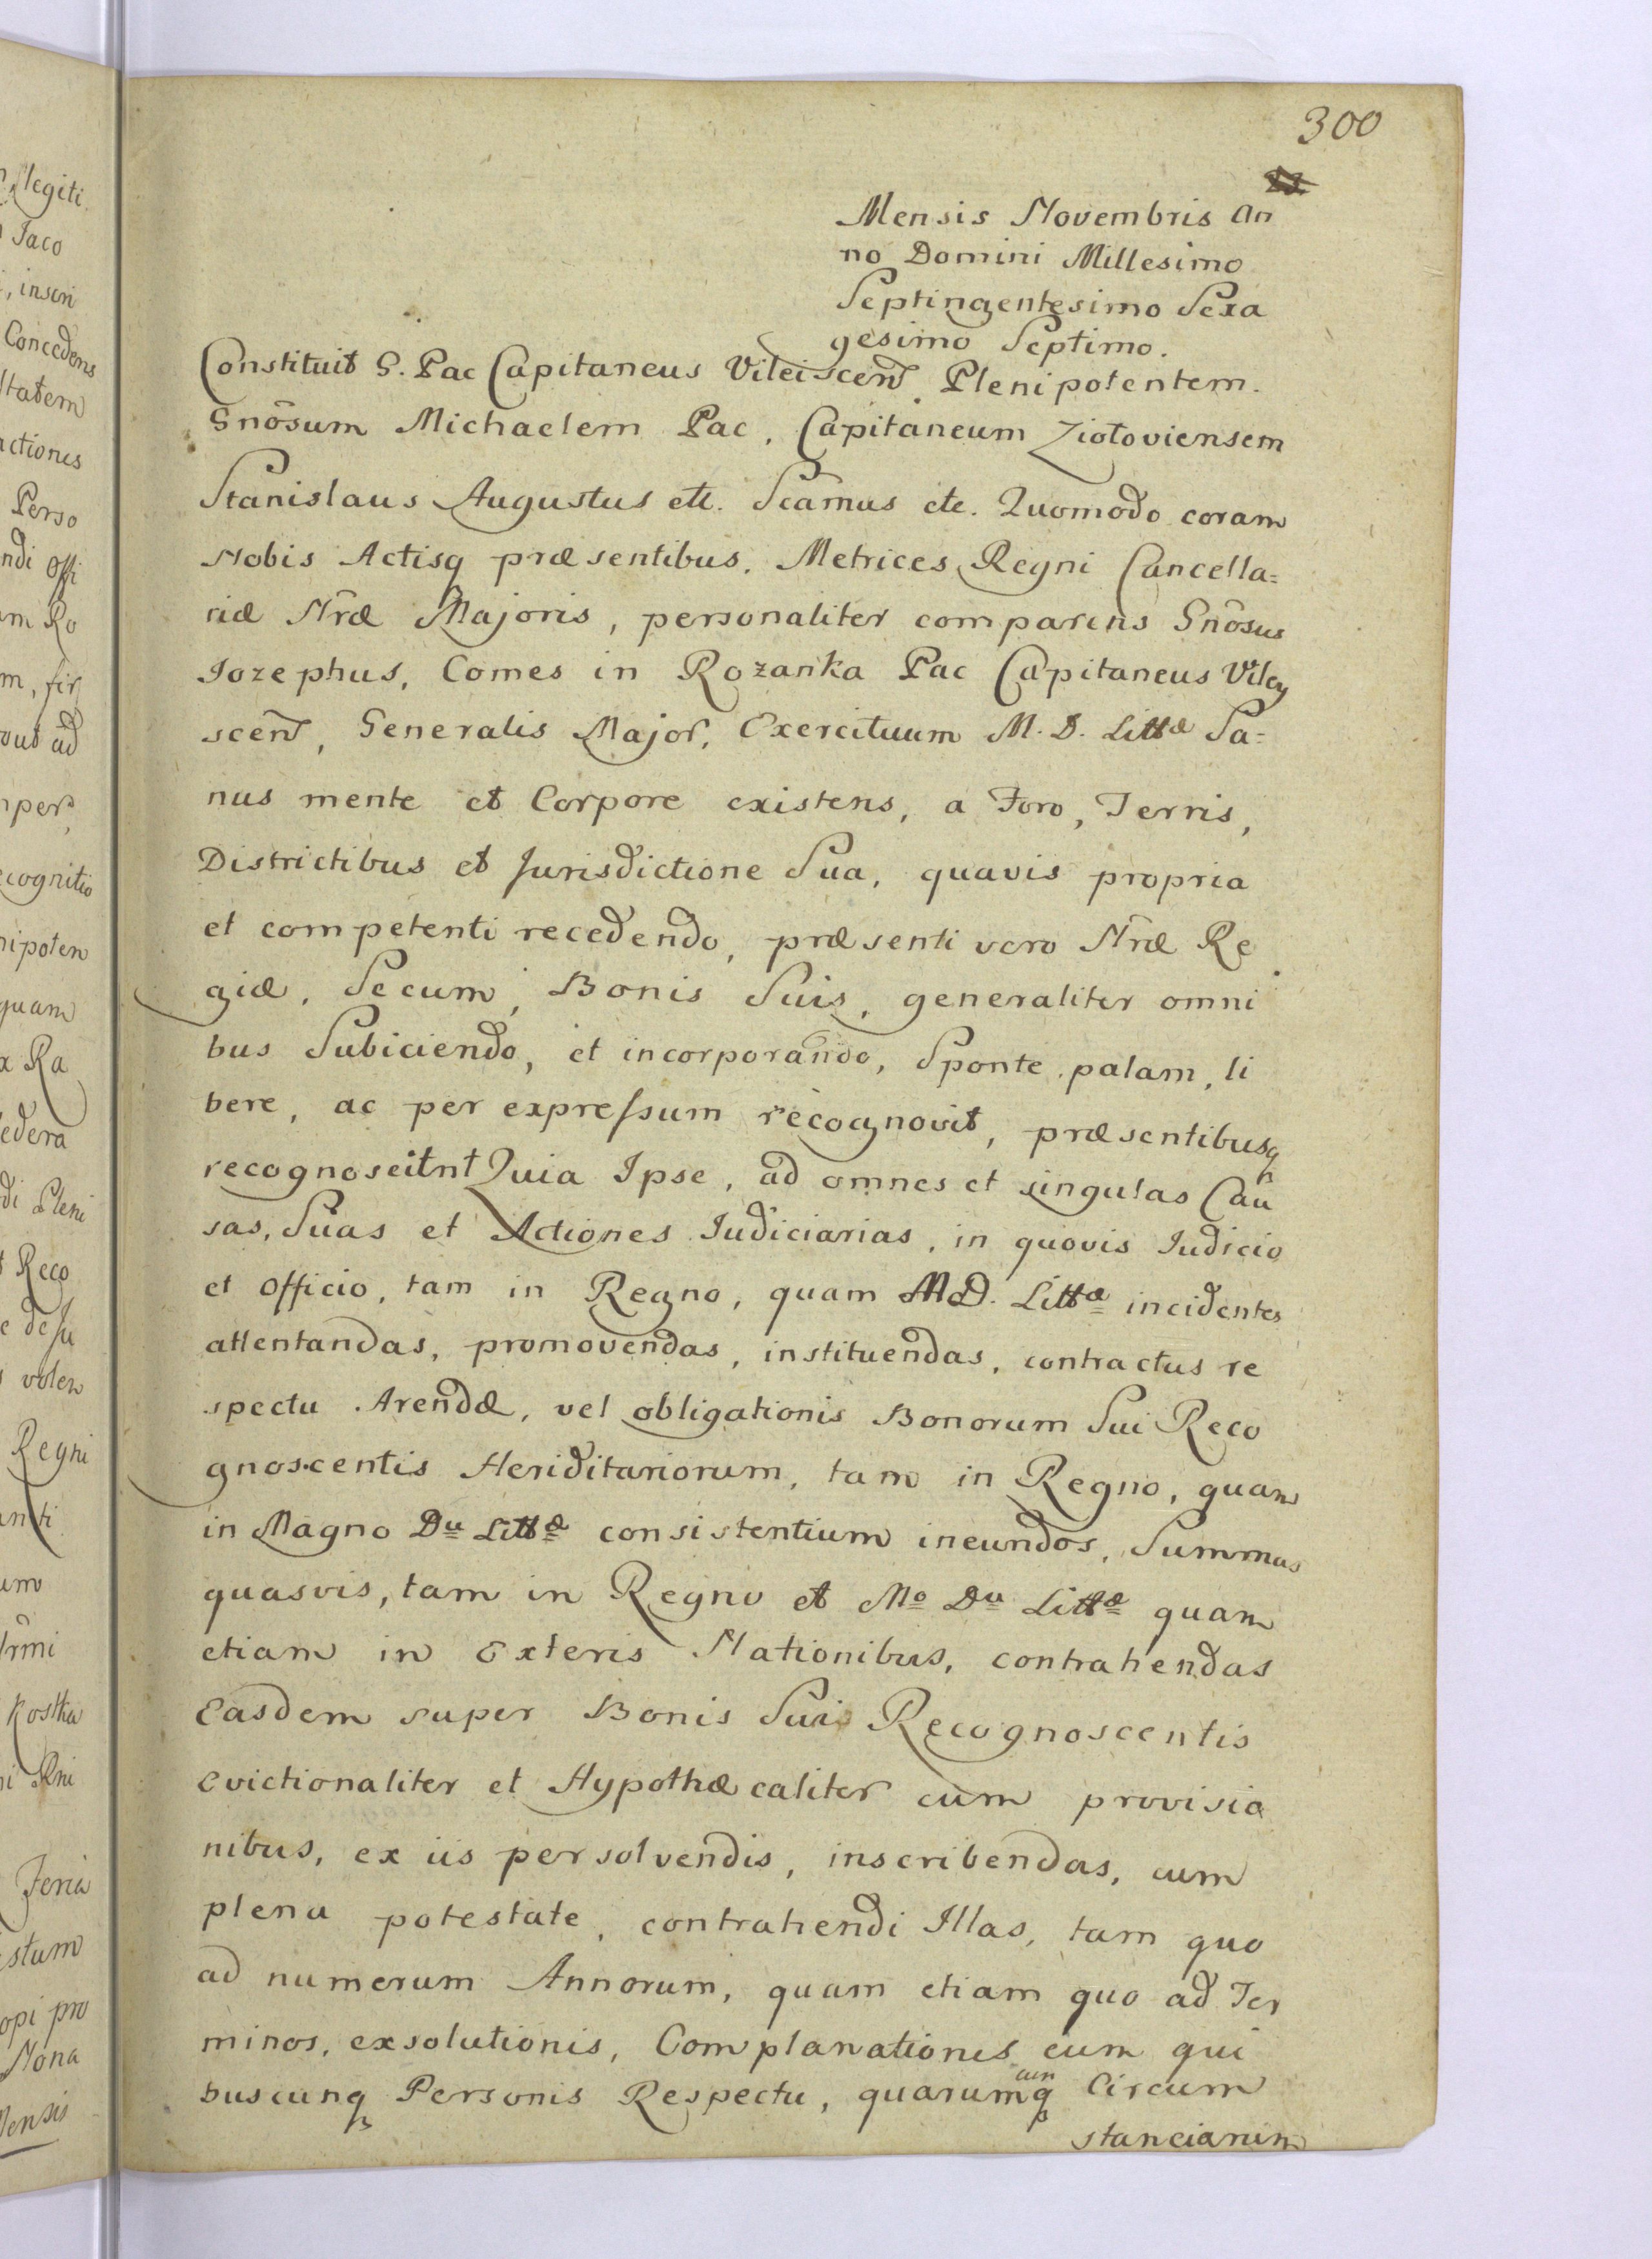 300
Mensis Novembris An
no Domini Millesimo
Septingentesimo Sexa
gesimo Septimo.
Constituit G. Pac Capitaneus Vileiscen̄ Plenipotentem.
Gnōsum Michaelem Pac, Capitaneum Ziotoviensem
Stanislaus Augustus etc. Scamus etc. Quomodo coram
Nobis Actisq præsentibus. Metrices Regni Cancella=
riæ Nr̄æ Majoris, personaliter comparens Gnōsus
Jozephus, Comes in Rozanka Pac Capitaneus Viley
scen̄, Generalis Major, Exercituum M. D. Littæ Sa=
nus mente et Corpore existens, a Foro, Terris,
Districtibus et Jurisdictione Sua, quavis propria
et competenti recedendo, præsenti vero Nr̄æ Re
giæ, Secum, Bonis Suis, generaliter omni
bus Subiciendo, et incorporando, Sponte palam, li
bere, ac per expressum recognovit, præsentibusq
recognoscitnt Quia Ipse, ad omnes et singulas Cau
sas, Suas et Actiones Judiciarias, in quovis Judicio
et Officio, tam in Regno, quam M.D. Littæ incidentes
attentandas, promovendas, instituendas, contractus re
spectu Arendæ, vel obligationis Bonorum Sui Reco
gnoscentis Heriditariorum, tam in Regno, quam
in Magno Du Littæ consistentium ineundos, Summas
quasvis, tam in Regno et Mo Du Littæ quam
etiam in Exteris Nationibus, contrahendas
Easdem super Bonis Sui Recognoscentis
evictionaliter et Hypothæcaliter cum provisio
nibus, ex iis persolvendis, inscribendas, cum
plena potestate, contrahendi Illas, tam quo
ad numerum Annorum, quam etiam quo ad Ter
minos, exsolutionis, Complanationes cum qui
buscunq Personis Respectu, quarumcunq Circum
stanciarum
legiti
Jaco
inscri
Concedens
ltatem
actiones
Perso
ndi Offi
m Ro
m, fir
out ad
nper,
ecognitio
nipoten
quam
x Ra
edera
di Pleni
Reco
e desu
volen
Regni
anti
um
Kostka
Feria
stum
opi pro
Nona
Mensis